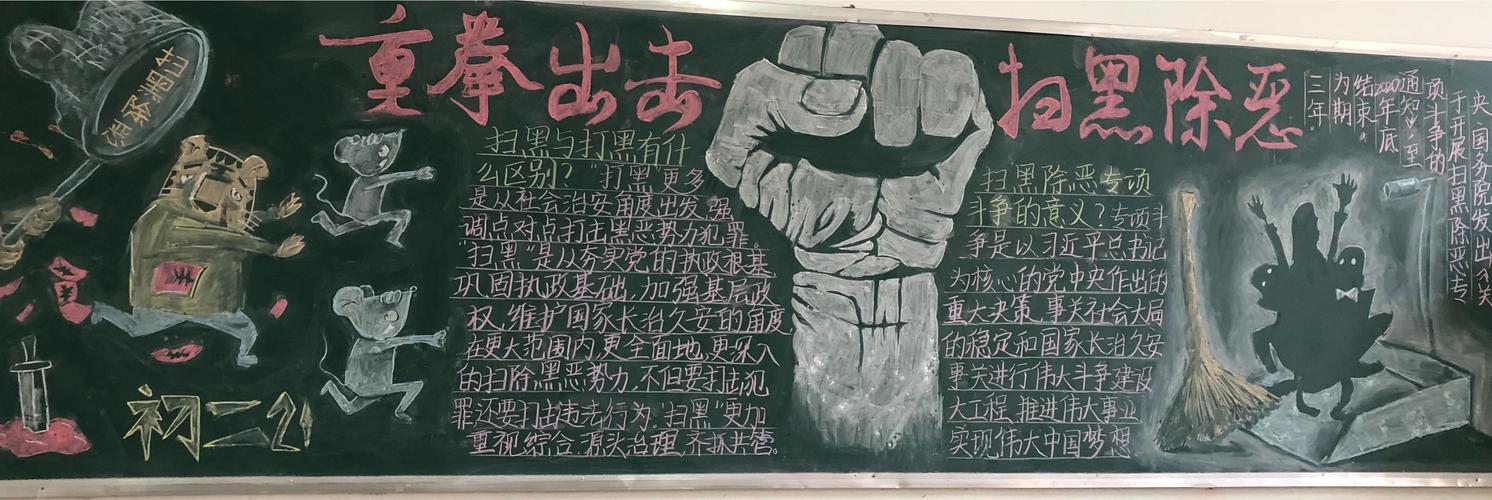 重拳出击
扫黑除恶
扫黑与打黑有什
么区别？"打黑"更多
是从社会治安角度出发,强
调点对点打击黑恶势力犯罪。
"扫黑"是从夯实党的执政根基
巩固执政基础,加强基层政
权,维护国家长治久安的角度
在更大范围内,更全面地,更深入
的扫除黑恶势力,不但要打击犯
罪还要打击违法行为."扫黑"更加
重视综合.源头治理,齐抓共管。
扫黑除恶专项
斗争的意义？专项斗
争是以习近平总书记
为核心的党中央作出的
重大决策,事关社会大局
的稳定和国家长治久安
事关进行伟大斗争建设
大工程,推进伟大事业
实现伟大中国梦想
央、国务院发出《关
于开展扫黑除恶专
项斗争的
通知》,至
2020年底
结束。
为期
三年。
初二21